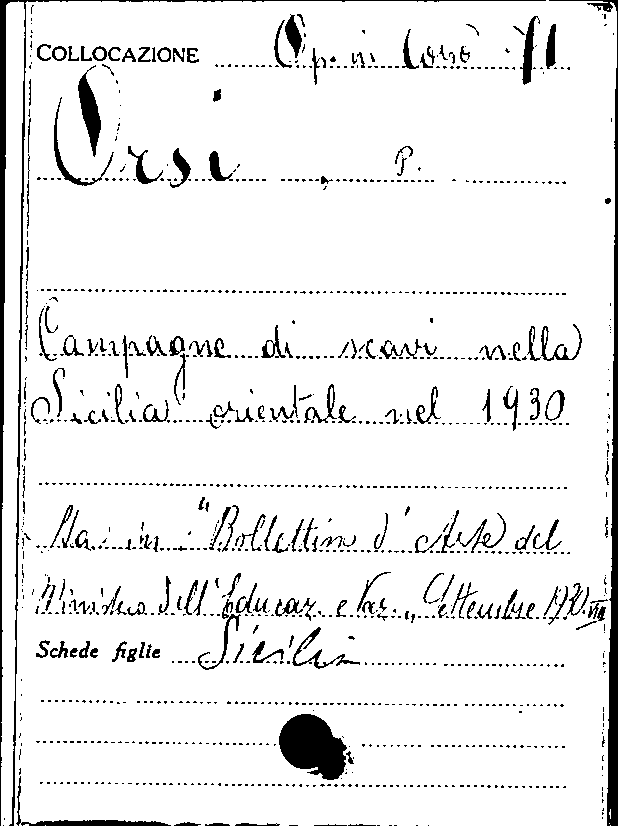 COLLOCAZIONE Op. in Cons. 71
Orsi, P.
Campagne di scavi nella
Sicilia orientale nel 1930
Sta in: "Bollettino d'Arte del
Ministero dell'Educaz. e Naz. „ Settembre 1930. VIII
Schede figlie Sicilia